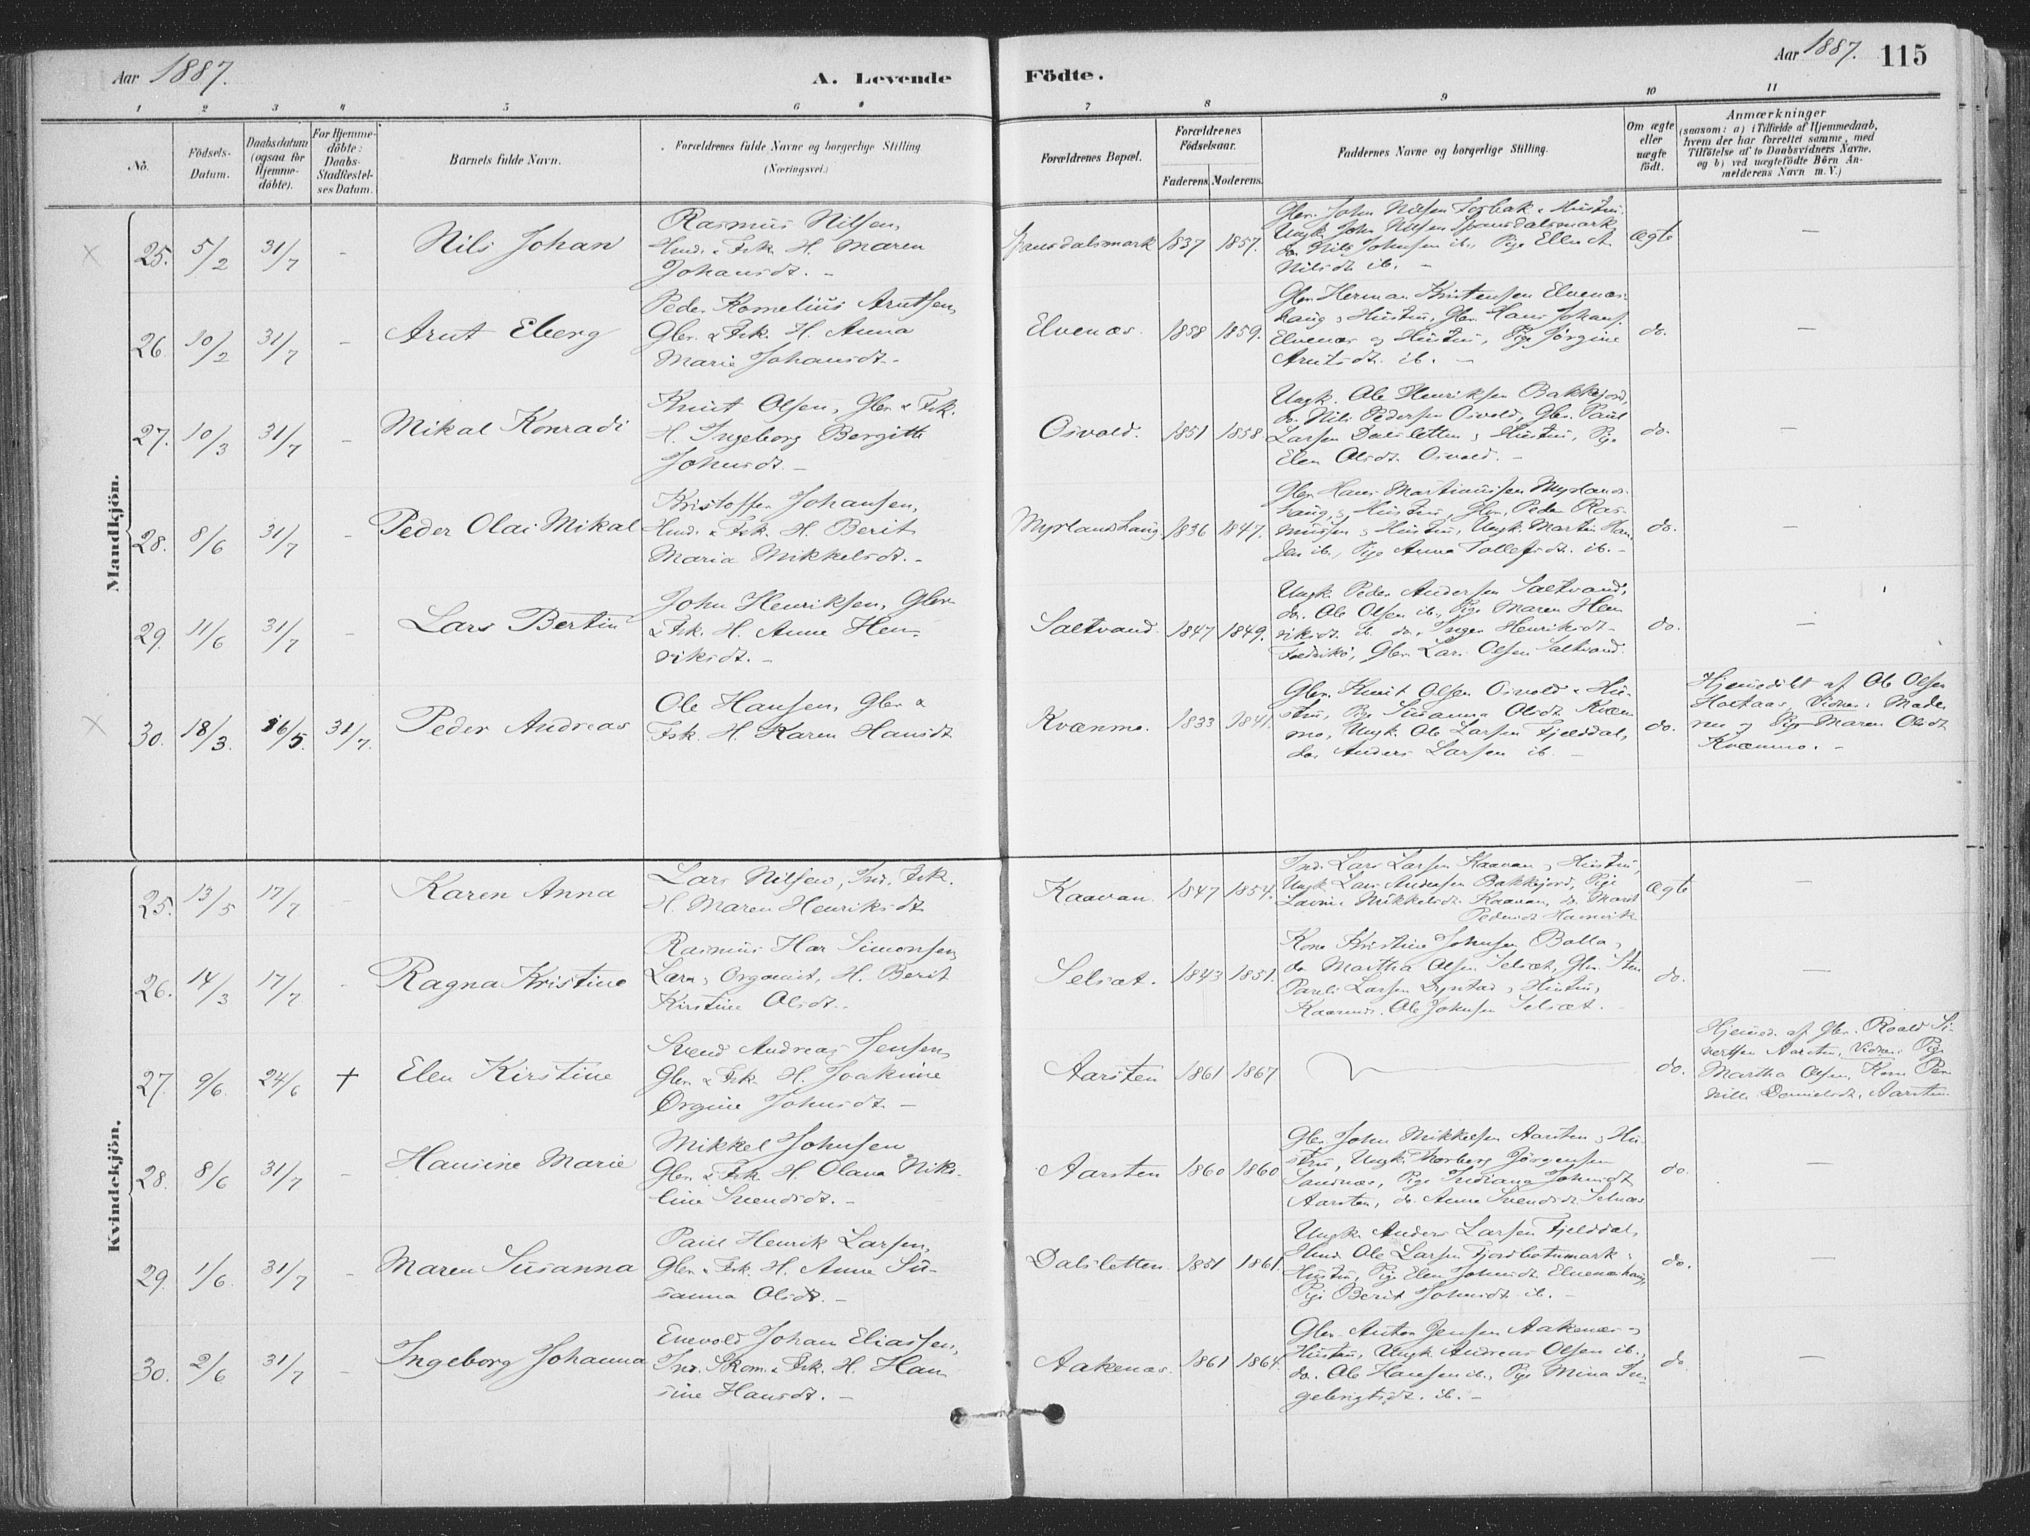 Aar 1887.
A. Levende
Födte.
Aar 1887. 115
1 2 3 4 5 6 7 8 9 10 11
No.
Födsels-Datum.
Daabsdatum (ogsaa for Hjemme-döbte).
For Hjemme-döbte: Daabs-Stadfæstel-ses Datum.
Barnets fulde Navn.
Forældrenes fulde Navne og borgerlige Stilling (Næringsvei.)
Forældrenes Bopæl.
Forældrenes Födselsaar.
Faderens. Moderens.
Faddernes Navne og borgerlige Stilling.
Om ægte eller uægte födt.
Anmærkninger
(saasom: a) i Tilfælde af Hjemmedaab,
hvem der har forrettet samme, med
Tilföielse af to Daabsvidners Navne.
og b) ved uægtefödte Börn An-
melderens Navn m. V.)
Mandkjön.
25. 5/2 31/7 Nils Johan
Rasmus Nilsen,
Ind. & Fsk. H. Maren
Johansdt. -
1837 1857.
Glbr. John Nilsen & Hustru,
Ungk. John Nilsen
do. Nils Johnsen ib., Pige Ellen A
Nilsdt. ib. -
Ægte -
26. 10/2 31/7 - Arnt Eberg
Peder Kornelius Arntsen,
Gbr. & Fsk. H. Anna
Marie Johansdt. -
Elvenæs. 1858 1859.
Gbr. Herman Kristensen Elvenæs-
haug & Hustru, Gbr. Hans Johans.
Elvenæs og Hustru, Pige Jørgine
Arntsdt. ib. -
do. -
27. 10/3 31/7 - Mikal Konradi
Knut Olsen, Gbr. & Fsk.
H. Ingeborg Bergitte
Johnsdt. -
Osvold. 1851 1858.
Ungk. Ole Henriksen Bakkejord,
do. Nils Pedersen Osvold, Gbr. Paul
Larsen Dalsletten & Hustru, Pige
Elen Olsdt. Osvold. -
do. -
28. 8/6 31/7 - Peder Olai Mikal
Kristoffer Johansen,
Ind. & Fsk. H. Berit
Maria Mikkelsdt. -
Myrlandshaug 1836 1847.
Gbr. Hans Martinussen Myrlands-
haug & Hustru, Gbr. Peder Ras-
mussen & Hustru, Ungk. Martin Han
sen ib., Pige Anna Tollefsdt. ib. -
do. -
29. 11/6 31/7 - Lars Bertin
John Henriksen, Gbr.
& Fsk. H. Anne Hen-
riksdt. -
Saltvand. 1847 1849.
Ungk. Peder Andersen Saltvand,
do. Ole Olsen ib., Pige Maren Hen
riksdt. ib. do. Inger Henriksdt.
Gbr. Lars Olsen Saltvand.
do. -
30. 18/3. 16/5 31/7. Peder Andreas
Ole Hansen, Gbr. &
Fsk. H. Karen Hansdt.
Kvænmo. 1833 1841.
Gbr. Knut Olsen Osvold & Hu-
stru, Pige Susanna Olsdt. Kvæn
mo, Ungk. Ole Larsen Fjelddal,
do. Anders Larsen ib. -
do.
Hjemdøbt af Ole Olsen
Holtaas, Vidner: Mode
ren og Pige Maren Olsdt.
Kvænmo. -
Kvindekjön.
25. 13/5 17/7 - Karen Anna
Lars Nilsen, Ind. Fsk.
H. Maren Henriksdt.
Kaavan. 1847 1854.
Ind. Lars Larsen Kaavan & Hustru,
Ungk. Lars Andersen Bakkejord, Pige
Lavine Mikkelsdt. Kaavan, do. Marit
Pedersdt. Hamvik
Ægte -
26. 14/3 17/7 - Ragna Kristine
Rasmus Har Simonsen,
Lærer & Organist, H. Berit
Kirstine Olsdt. -
Selsæt. 1843 1851.
Kone Kristine Johnsen Balla,
do. Martha Olsen Selsæt, Gbr. Sten
Pareli Larsen Dyrstad & Hustru,
Ole Johnsen Selsæt.
do. -
27. 9/6. 24/6 + Elen Kirstine
Svend Andreas Jensen,
Gbr. & Fsk. H. Joakime
Orgine Johnsdt. -
Aarsten 1861 1867
do.
Hjemd. af Gbr. Roald Si-
vertsen Aarsten, Vidner: Pige
Martha Olsen, Kone Per
nille Danielsdt., Aarsten.
28. 8/6 31/7 - Hansine Marie
Mikkel Johnsen
Gbr. & Fsk. H. Olana Nik-
line Svendsdt. -
Aarsten 1860 1860
Gbr. John Mikkelsen Aarsten & Hu-
stru, Ungk. Norberg Jörgensen
Sandnæs, Pige Indiana Johnsdt.
Aarsten, do. Anna Svendsdt. Selnæs
do. -
29. 1/6. 31/7 - Maren Susanna
Paul Henrik Larsen,
Gbr. & Fsk. H. Anne Su-
sanna Olsdt. -
Dalsletten. 1851 1861.
Ungk. Anders Larsen Fjelddal,
Ind. Ole Larsen Fjordbotnmark &
Hustru, Pige Elen Johnsdt. Elvenæshaug,
Pige Berit Johnsdt. ib. -
do. -
30. 2/6 31/7 - Ingeborg Johanna
Enevold Johan Eliassen,
Ind. Skom. & Fsk. H. Han
sine Hansdt. -
Aakenæs. 1861 1864.
Gbr. Anton Jensen Aakenæs &
Hustru, Ungk. Andreas Olsen ib.,
do. Ole Hansen ib., Pige Mina In-
gebrigtsdt. ib. -
do. -